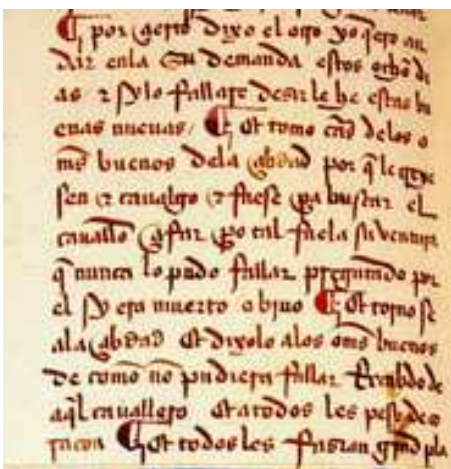 ¶ por çierto dixo el otro yo q̃ero an
dar enla su demanda estos ocho di
as ⁊ sy lo fallare desir le he estas bu
enas nueuas / ¶ Et tomo cr̃as delos o
ms̃ buenos dela çibdad por q̃ le creye
sen ⁊ caualgo ⁊ fuese pa buscar el
cauallõ çifar po tal fue la su ventura
q̃ nunca lo pudo fallar preguntãdo por
el sy era muerto o biuo ¶ Et torno se
ala çibdad Et dixolo alos om̃s buenos
de commo nõ pudiera fallar Recabdo de
aq̃l cauallero Et atodos les peso de co
raçon ¶ Et todos les fasian gr̃nd pla